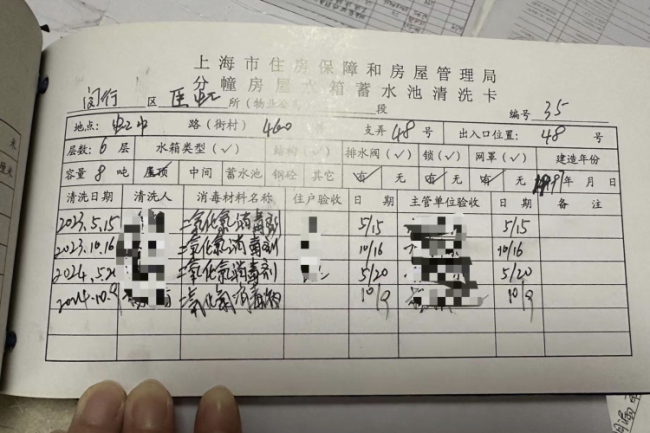 上海市住房保障和房屋管理局
分幢房屋水箱蓄水池清洗卡
闵行 区 所(物业公司 段 编号 35
地点: 路(街村) 460 支弄 48 号 出入口位置: 48 号
层数: 6 层 水箱类型(√) 结构(√) 排水阀(√) 锁(√) 网罩(√) 建造年份
容量 8 吨 屋顶 中间 蓄水池 钢砼 其它 有 无 有 无 有 无 年 月 日
清洗日期 清洗人 消毒材料名称 住户验收 日期 主管单位验收 日期 备注
2023.5.15 二氧化氯消毒剂 5/15 5/15
2023.10.16 二氧化氯消毒剂 10/16 10/16
2024.5.20 二氧化氯消毒剂 5/20 5/20
2024.10.9 二氧化氯消毒剂 10/9 10/9